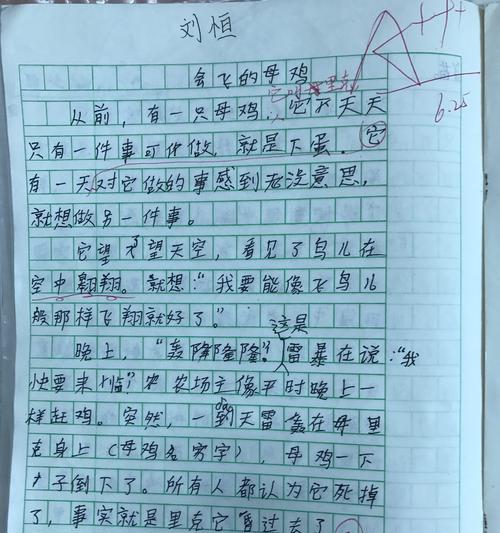 刘恒
会飞的母鸡
它叫里克
从前，有一只母鸡，它天天
只有一件事可做，就是下蛋。它
有一天对它做的事感到无没意思，
就想做另一件事。
它望了望天空，看见了鸟儿在
空中翱翔。就想：“我要能像飞鸟儿
般那样飞翔就好了。”
这是
晚上，“轰隆隆隆！雷暴在说：“我
快要来临！农场主像平时晚上一
样赶鸡。突然，一到天雷轰在母里
克身上（母鸡名字），母鸡一下
子倒下了。所有人都认为它死掉
了，事实就是里克它昏过去了
A++
6.25